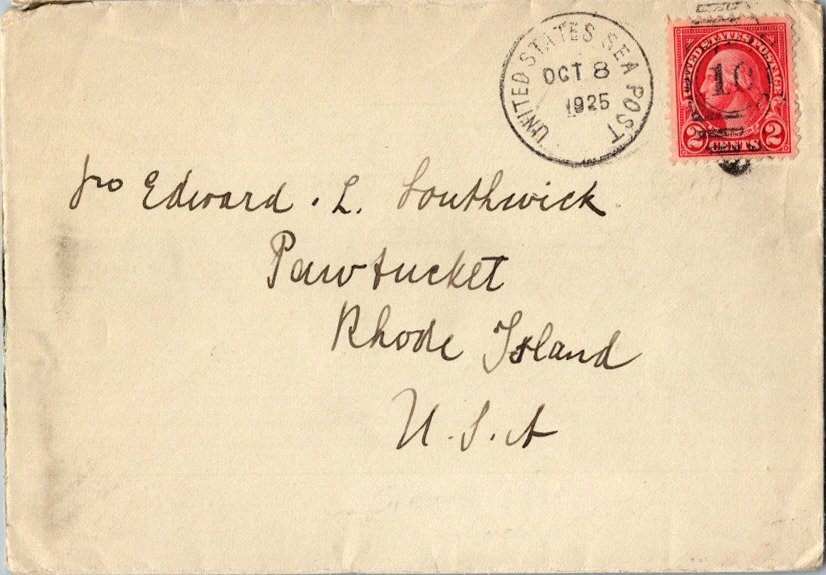 UNITED STATES SEA POST
OCT 8
1925
UNITED STATES POSTAGE
10
2 CENTS 2
Edward . L. Southwick
Pawtucket
Rhode Island
U.S.A